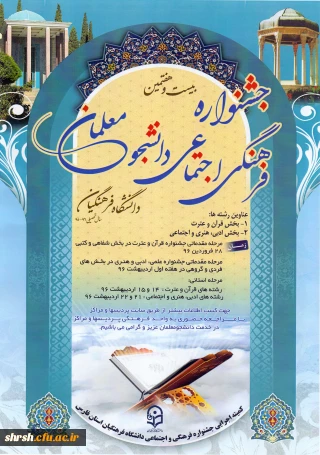 بیست و هفتمین
جشنواره
فرهنگی اجتماعی دانشجو معلمان
دانشگاه فرهنگیان
عناوین رشته ها:
۱- بخش قرآن و عترت
۲- بخش ادبی، هنری و اجتماعی
زمان:
مرحله مقدماتی جشنواره قرآن و عترت در بخش شفاهی و کتبی
۲۸ فروردین ۹۶
مرحله مقدماتی جشنواره علمی، ادبی و هنری در بخش های
فردی و گروهی در هفته اول اردیبهشت ۹۶
مرحله استانی:
رشته های قرآن و عترت : ۱۴ و ۱۵ اردیبهشت ۹۶
رشته های ادبی، هنری و اجتماعی : ۲۱ و ۲۲ اردیبهشت ۹۶
جهت کسب اطلاعات بیشتر از طریق سایت پردیسها و مراکز
یا مراجعه حضوری به واحد فرهنگی پردیسها و مراکز
در خدمت دانشجومعلمان عزیز و گرامی می باشیم.
کمیته اجرایی جشنواره فرهنگی و اجتماعی دانشگاه فرهنگیان استان فارس
shrsh.cfu.ac.ir